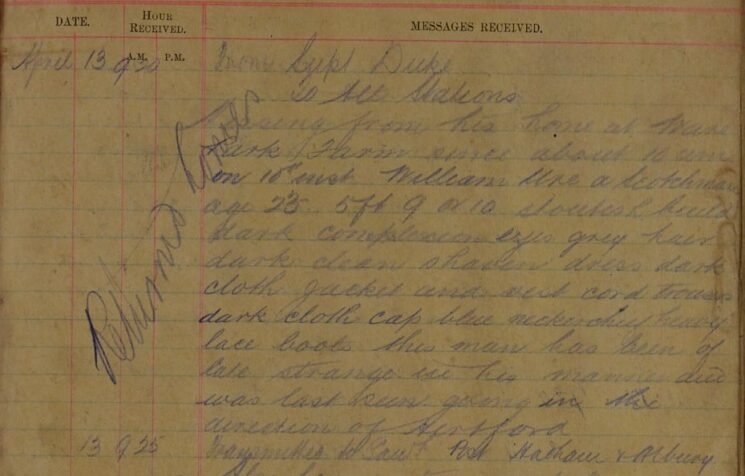 DATE. HOUR RECEIVED. MESSAGES RECEIVED.
A.M. P.M.
April 13 9 20 From Supt Duke
to All Stations
from his home at Ware
Park Farm since about 10 am
on 10th inst William Ure a Scotchman
age 23 5ft 9 or 10 stoutish build
dark complexion eyes grey hair
dark clean shaven dress dark
cloth jacket and vest cord trousers
dark cloth cap blue neckerchief heavy
lace boots this man has been of
late strange in his manner and
was last seen going in the
direction of Hertford
13 9 25 Transmitted to Hadham & Albury
Returned